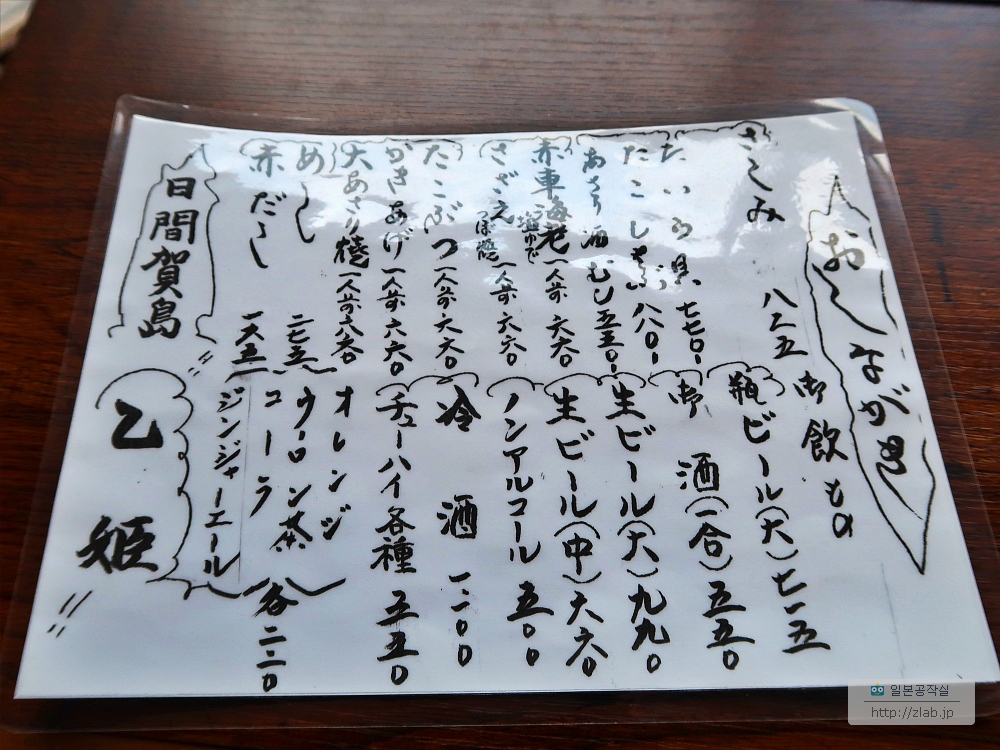 おしながき
さしみ 八二五
たいら貝 七七〇
たこしゃぶ 八八〇
あさり酒むし 五五〇
赤車海老 塩ゆで 一人前 六六〇
さざえ つぼ焼 一人前 六六〇
たこぶつ 一人前 六六〇
かきあげ 一人前 六六〇
大あさり焼 一人前
めし 二七五
赤だし 一六五
御飲もの
瓶ビール(大)七一五
御酒(一合)五五〇
生ビール(大)九九〇
生ビール(中)六六〇
ノンアルコール 五〇〇
冷酒 一一〇〇
チューハイ各種 五五〇
オレンジ
ウーロン茶
コーラ
ジンジャーエール
各二二〇
日間賀島
乙姫
일본공작실
http://zlab.jp